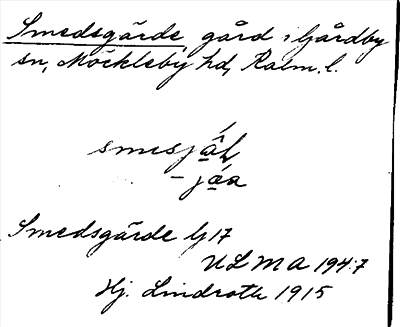 Smedsgärde, gård i Gårdby
sn, Möckleby hd, Kalm. l.
smesjäl
- jäa
Smedsgärde Gj 17
ULMA 194:7
Hj. Lindroth 1915